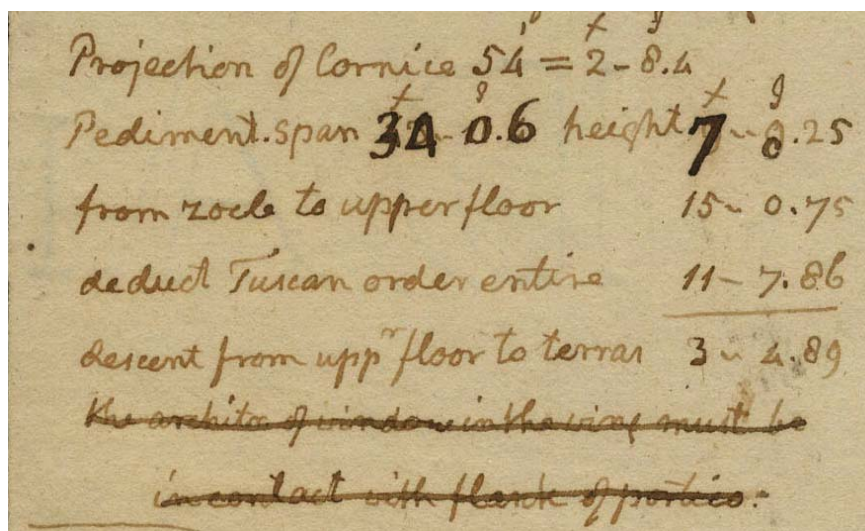 Projection of Cornice 54' = 2 - 8.4
Pediment. span 34 - 0.6 height 7 - 0.25
from zocle to upper floor 15 - 0.75
deduct Tuscan order entire 11 - 7.86
descent from uppr floor to terras 3 - 4.89
the architr of window in the wing must be
in contact with flank of portico.-